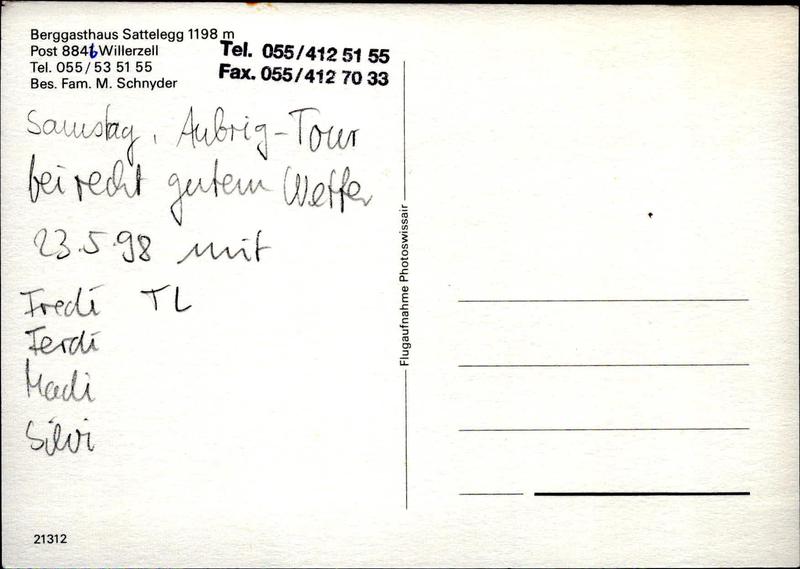 Berggasthaus Sattelegg 1198 m
Post 8846 Willerzell
Tel. 055/53 51 55
Bes. Fam. M. Schnyder
Tel. 055/412 51 55
Fax. 055/412 70 33
Samstag, Aubrig-Tour
bei recht gutem Wetter
23.5.98 mit
Fredi TL
Ferdi
Madi
Silvi
Flugaufnahme Photoswissair
21312